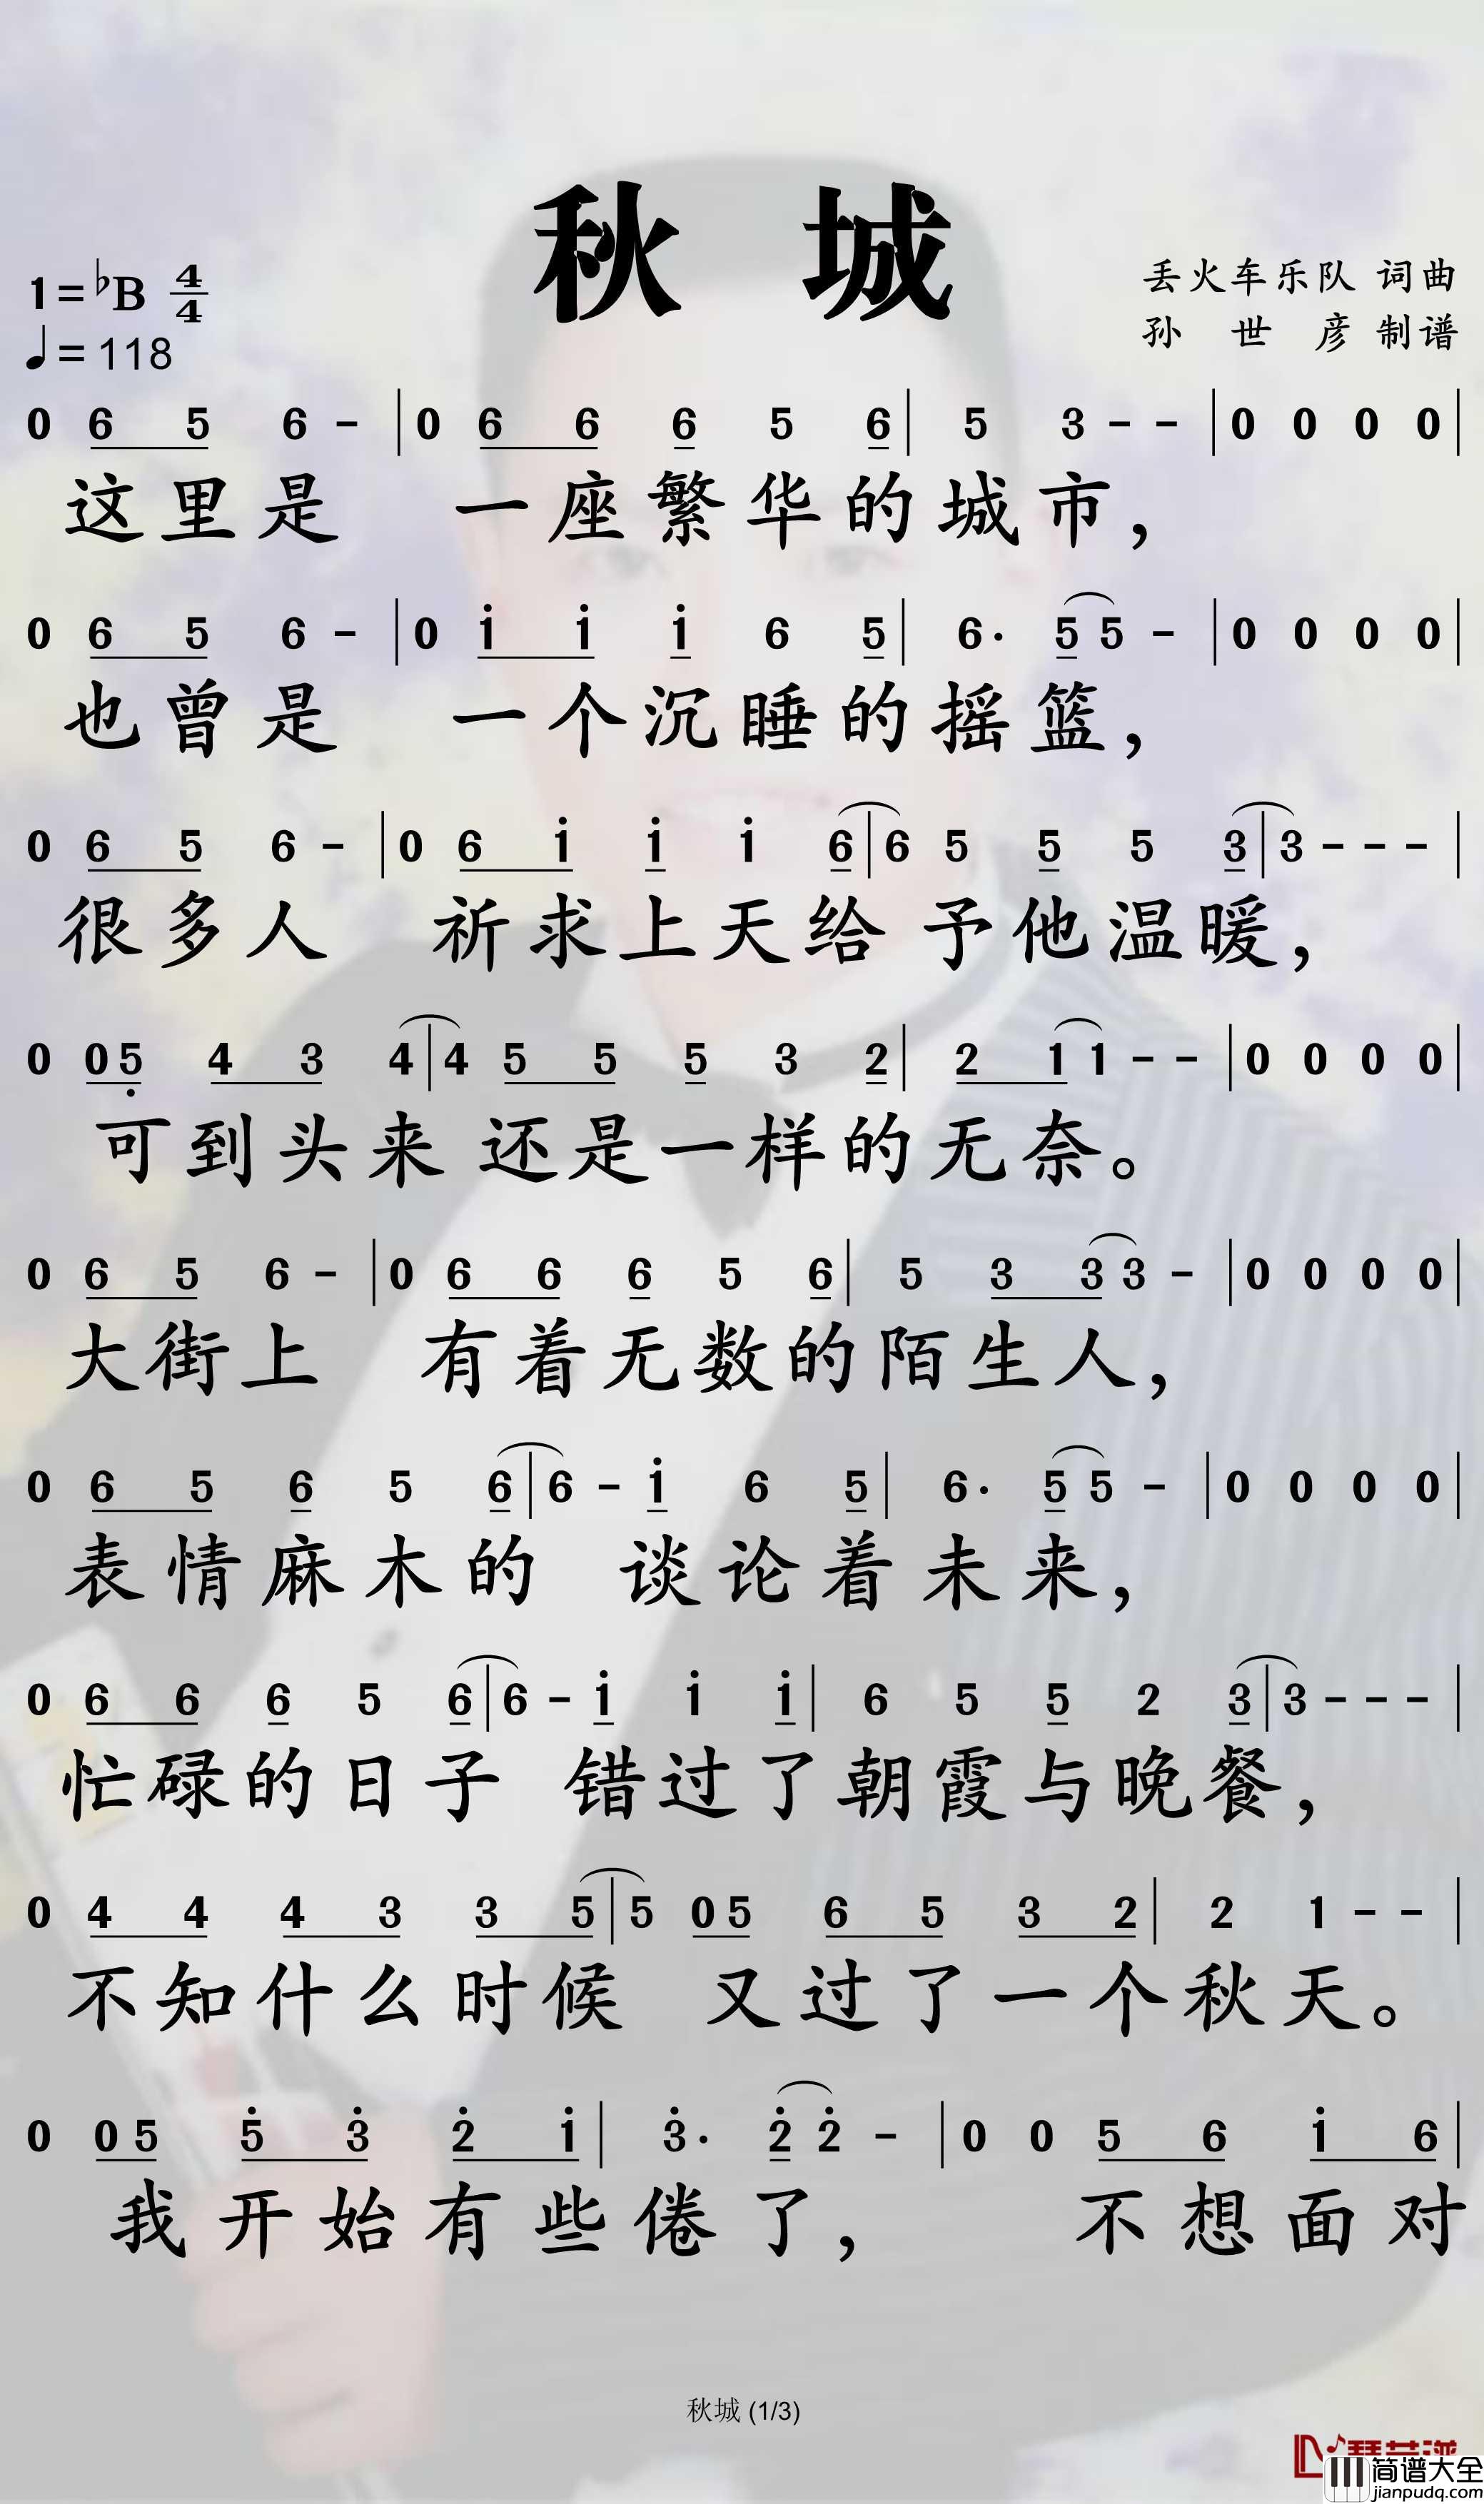 秋 城
1=♭B 4/4
♩=118
丢火车乐队 词曲
孙 世 彦 制谱
0 6 5 6 - | 0 6 6 6 5 6 | 5 3 - - | 0 0 0 0 |
这里是 一座繁华的城市，
0 6 5 6 - | 0 i i i 6 5 | 6· 5 5 - | 0 0 0 0 |
也曾是 一个沉睡的摇篮，
0 6 5 6 - | 0 6 i i i 6 | 6 5 5 5 3 | 3 - - - |
很多人 祈求上天给予他温暖，
0 0 5 4 3 4 | 4 5 5 5 3 2 | 2 1 1 - - | 0 0 0 0 |
可到头来还是一样的无奈。
0 6 5 6 - | 0 6 6 6 5 6 | 5 3 3 3 - | 0 0 0 0 |
大街上 有着无数的陌生人，
0 6 5 6 5 6 | 6 - i 6 5 | 6· 5 5 - | 0 0 0 0 |
表情麻木的 谈论着未来，
0 6 6 6 5 6 | 6 - i i i | 6 5 5 2 3 | 3 - - - |
忙碌的日子 错过了朝霞与晚餐，
0 4 4 4 3 3 5 | 5 0 5 6 5 3 2 | 2 1 - - |
不知什么时候 又过了一个秋天。
0 0 5 5̇ 3̇ 2̇ i | 3̇· 2̇ 2̇ - | 0 0 5 6 i 6 |
我开始有些倦了， 不想面对
秋城 (1/3)
简谱大全
jianpudq.com